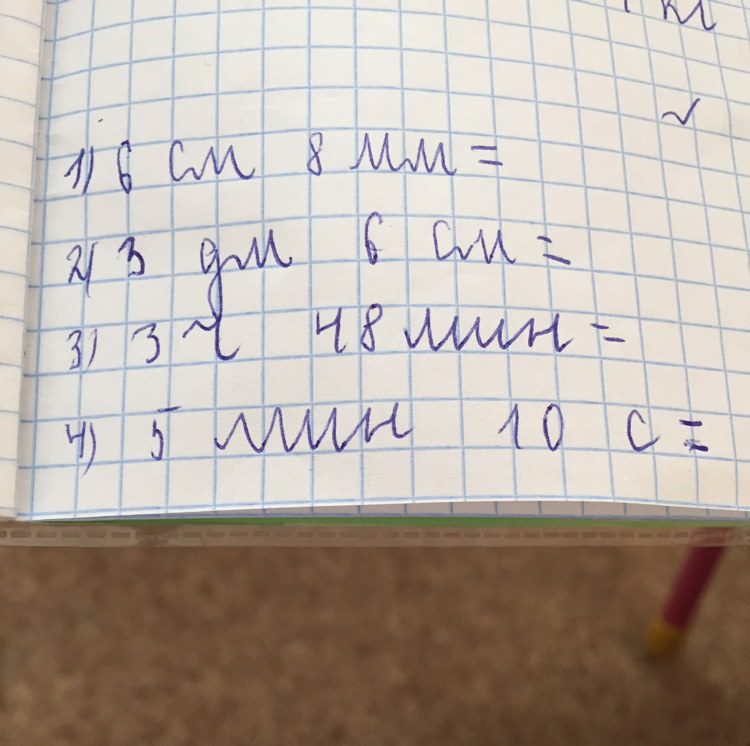 1) 6 см 8 мм =
2) 3 дм 6 см =
3) 3 ч 48 мин =
4) 5 мин 10 с =